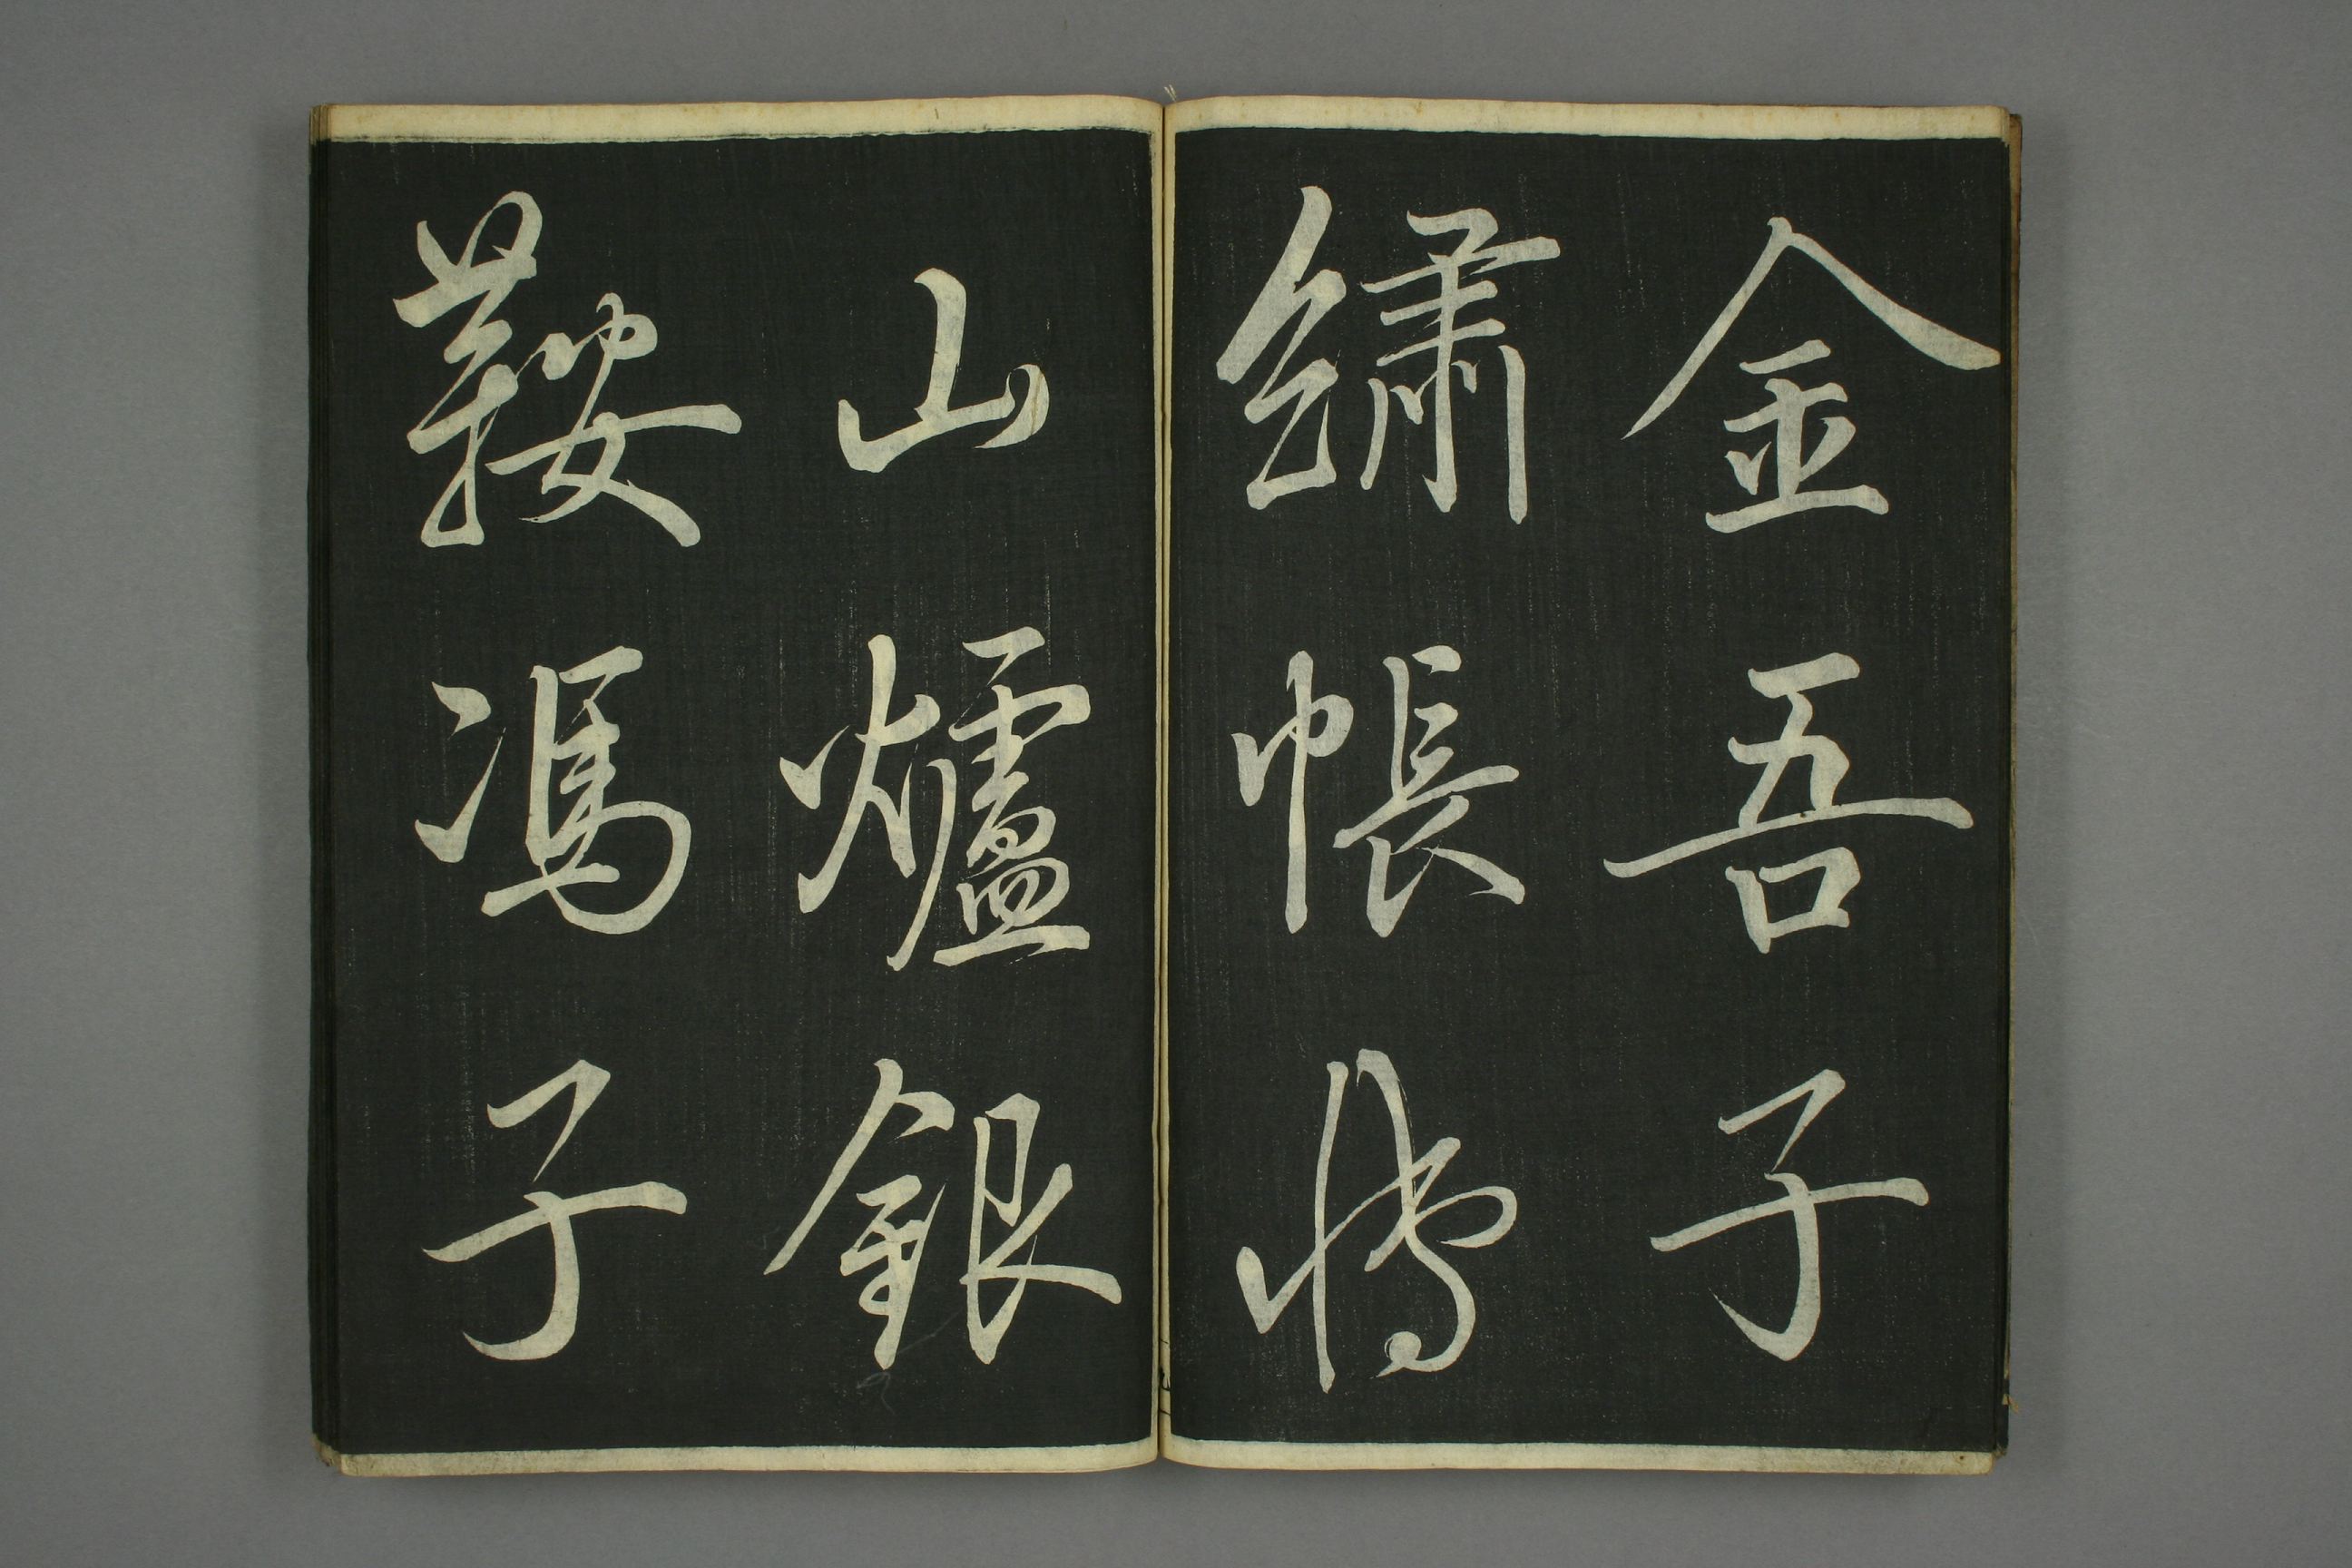 金吾子
繡帳博
山爐銀
鞍馮子